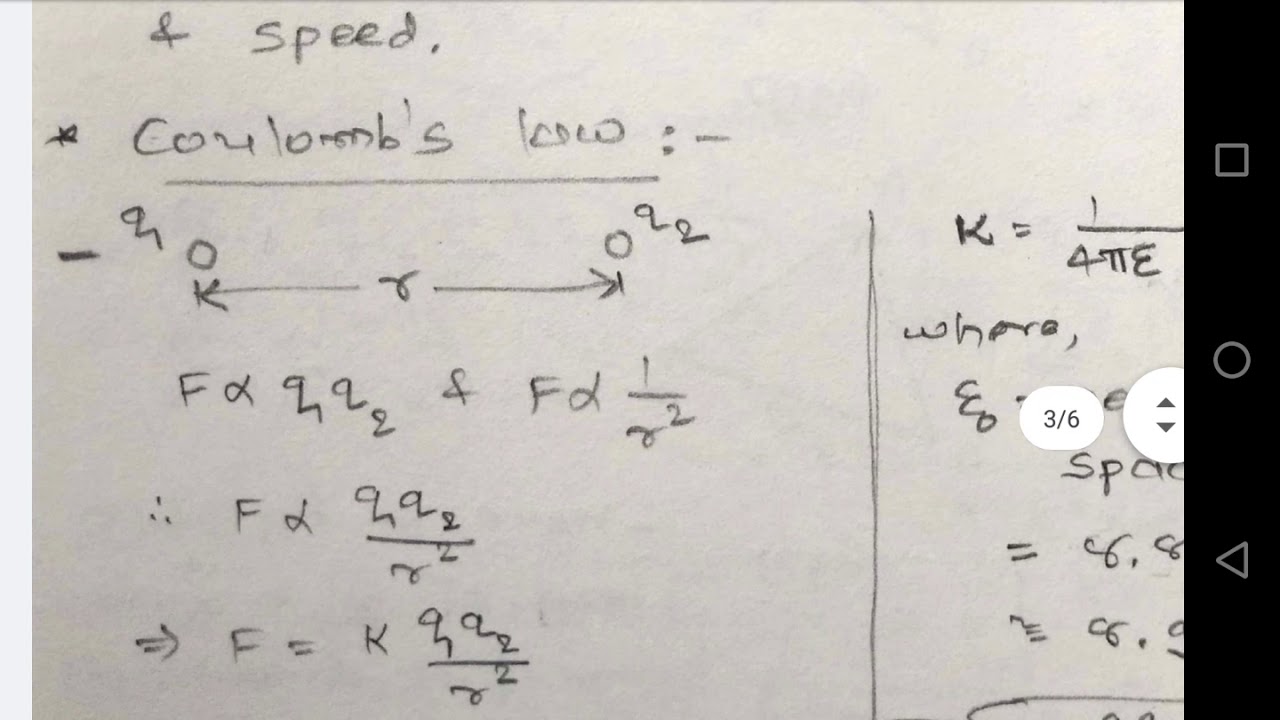 & speed.
* Coulomb's law :-
- q1 q2
r
F ∝ q1q2 & F ∝ 1/r²
∴ F ∝ q1q2/r²
⇒ F = K q1q2/r²
K = 1/4πε
where,
ε0 -
= 8.8
≈ 8.9
3/6